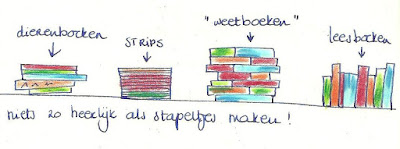 dierenboeken
STRIPS
"weetboeken"
leesboeken
niets zo heerlijk als stapeltjes maken!